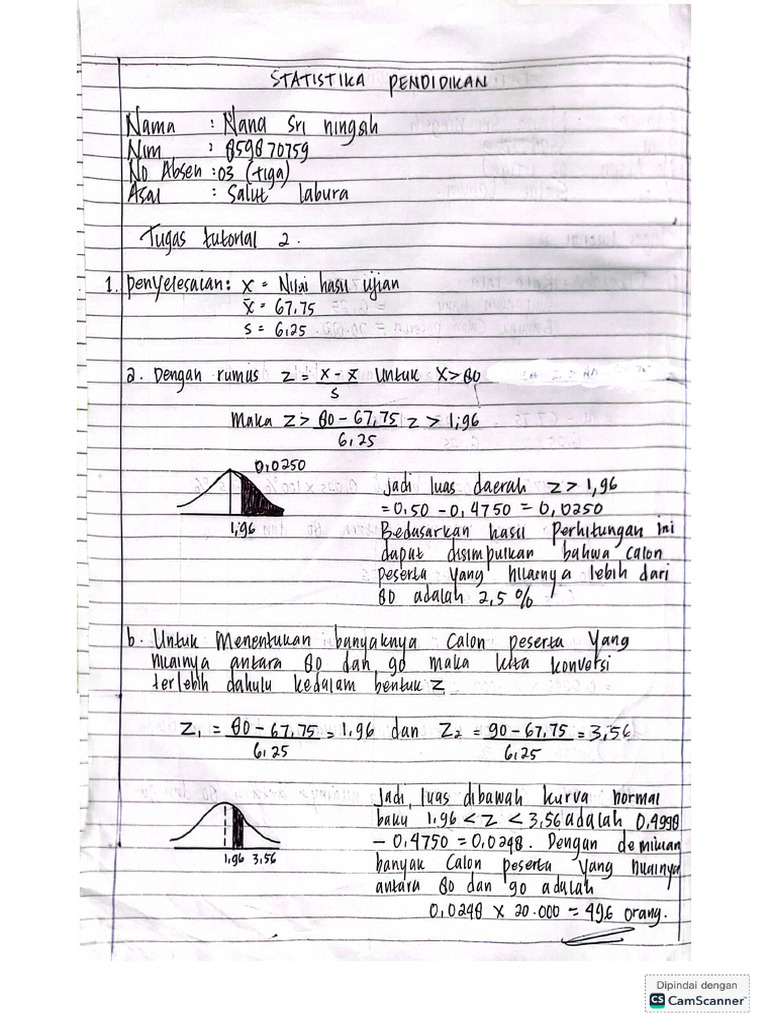 STATISTIKA PENDIDIKAN
Nama : Nana Sri ningsih
Nim : 859870759
No Absen : 03 (tiga)
Asal : Salut labura
Tugas tutorial 2.
1. Penyelesaian: x = Nilai hasil ujian
x̄ = 67,75
s = 6,25
2. Dengan rumus z = x - x̄ / s Untuk X > 80
Maka z > 80 - 67,75 / 6,25 z > 1,96
0,0250
1,96
Jadi luas daerah z > 1,96
= 0,50 - 0,4750 = 0,0250
Bedasarkan hasil Perhitungan ini
dapat disimpulkan bahwa calon
peserta yang nilainya lebih dari
80 adalah 2,5 %
b. Untuk Menentukan banyaknya Calon peserta yang
nilainya antara 80 dan 90 maka kita konversi
terlebih dahulu kedalam bentuk Z
Z₁ = 80 - 67,75 / 6,25 = 1,96 dan Z₂ = 90 - 67,75 / 6,25 = 3,56
1,96 3,56
Jadi, luas dibawah kurva normal
baku 1,96 < Z < 3,56 adalah 0,4998
- 0,4750 = 0,0248. Dengan demikian
banyak Calon peserta yang nilainya
antara 80 dan 90 adalah
0,0248 x 20.000 = 496 orang.
Dipindai dengan
CS CamScanner